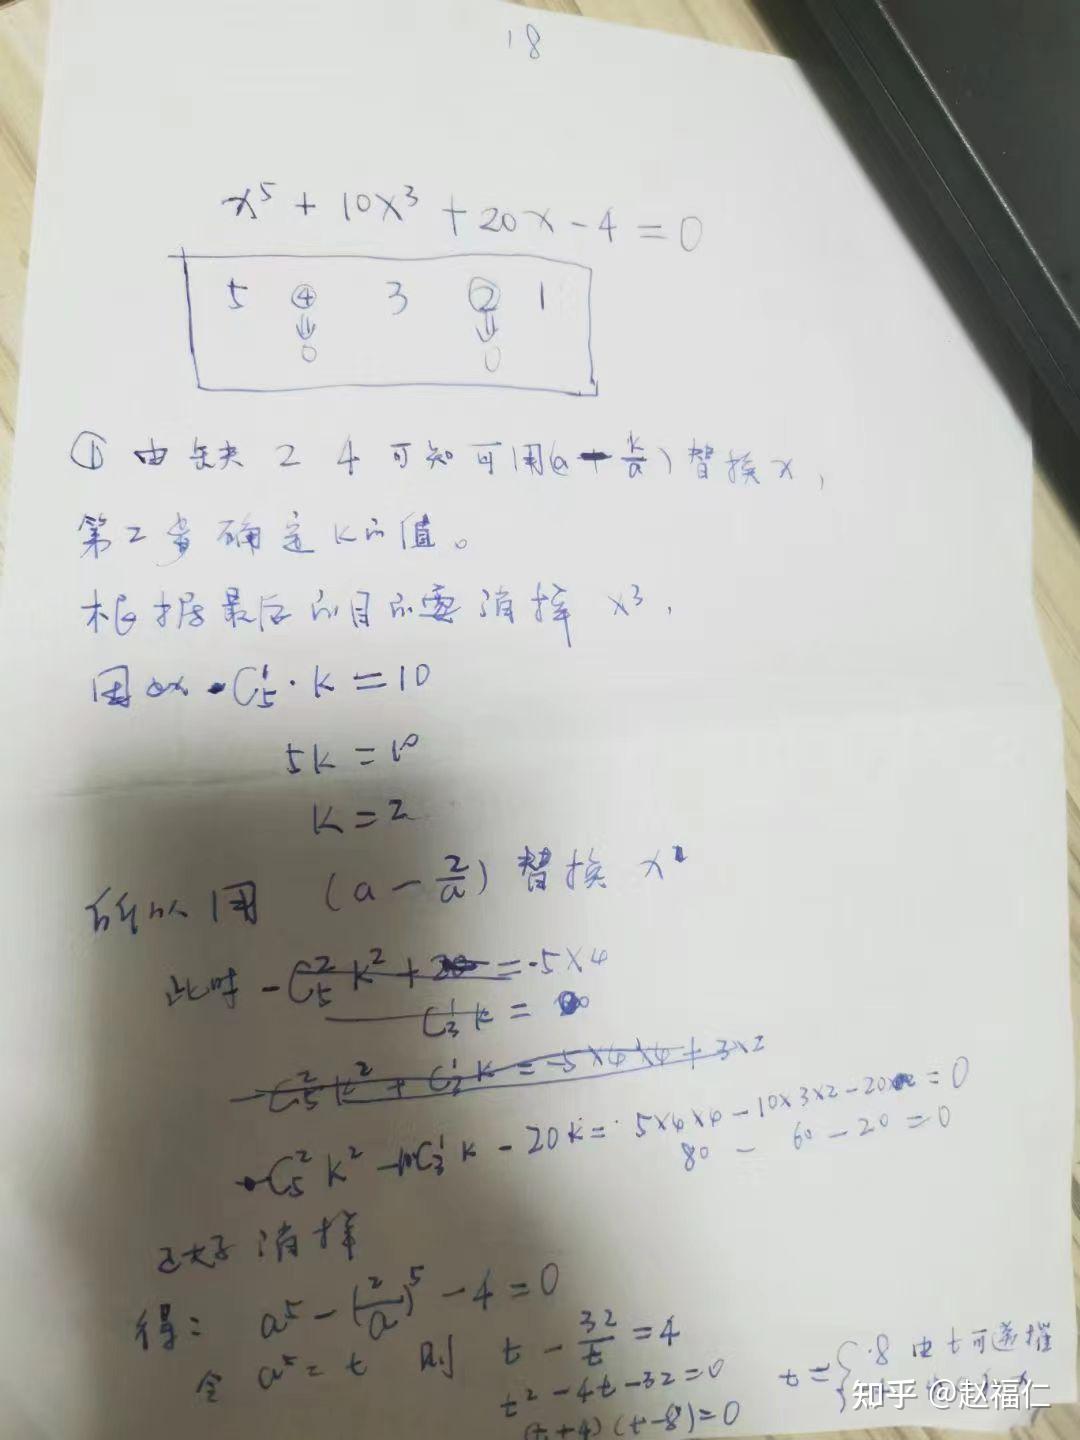 18
x⁵ + 10x³ + 20x - 4 = 0
5 ④ 3 ② 1
⇓ ⇓
0 0
① 由缺失 2 4 可知可用(a - k/a) 替换 x,
第2步确定 k的值。
根据最后的目的要消掉 x³,
因此 C₅¹·k = 10
5k = 10
k = 2
所以用 (a - 2/a) 替换 x
此时 - C₅²k² + = -5×4
C₃¹k =
- C₅²k² + C₃¹k = -5×4×4 + 3×2
C₅²k² - 10C₃¹k - 20k = 5×4×4 - 10×3×2 - 20 = 0
80 - 60 - 20 = 0
正好消掉
得: a⁵ - (2/a)⁵ - 4 = 0
令 a⁵ = t 则 t - 32/t = 4
t² - 4t - 32 = 0
(t+4)(t-8) = 0
t = { 8 由 t 可递推
知乎 @赵福仁